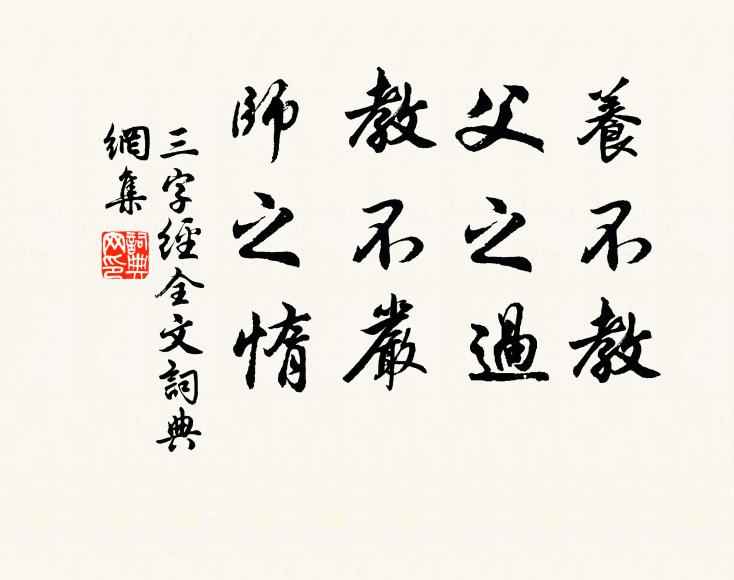 養不教
父之過
教不嚴
師之惰
三字經全文詞典
網集
詞典
网印